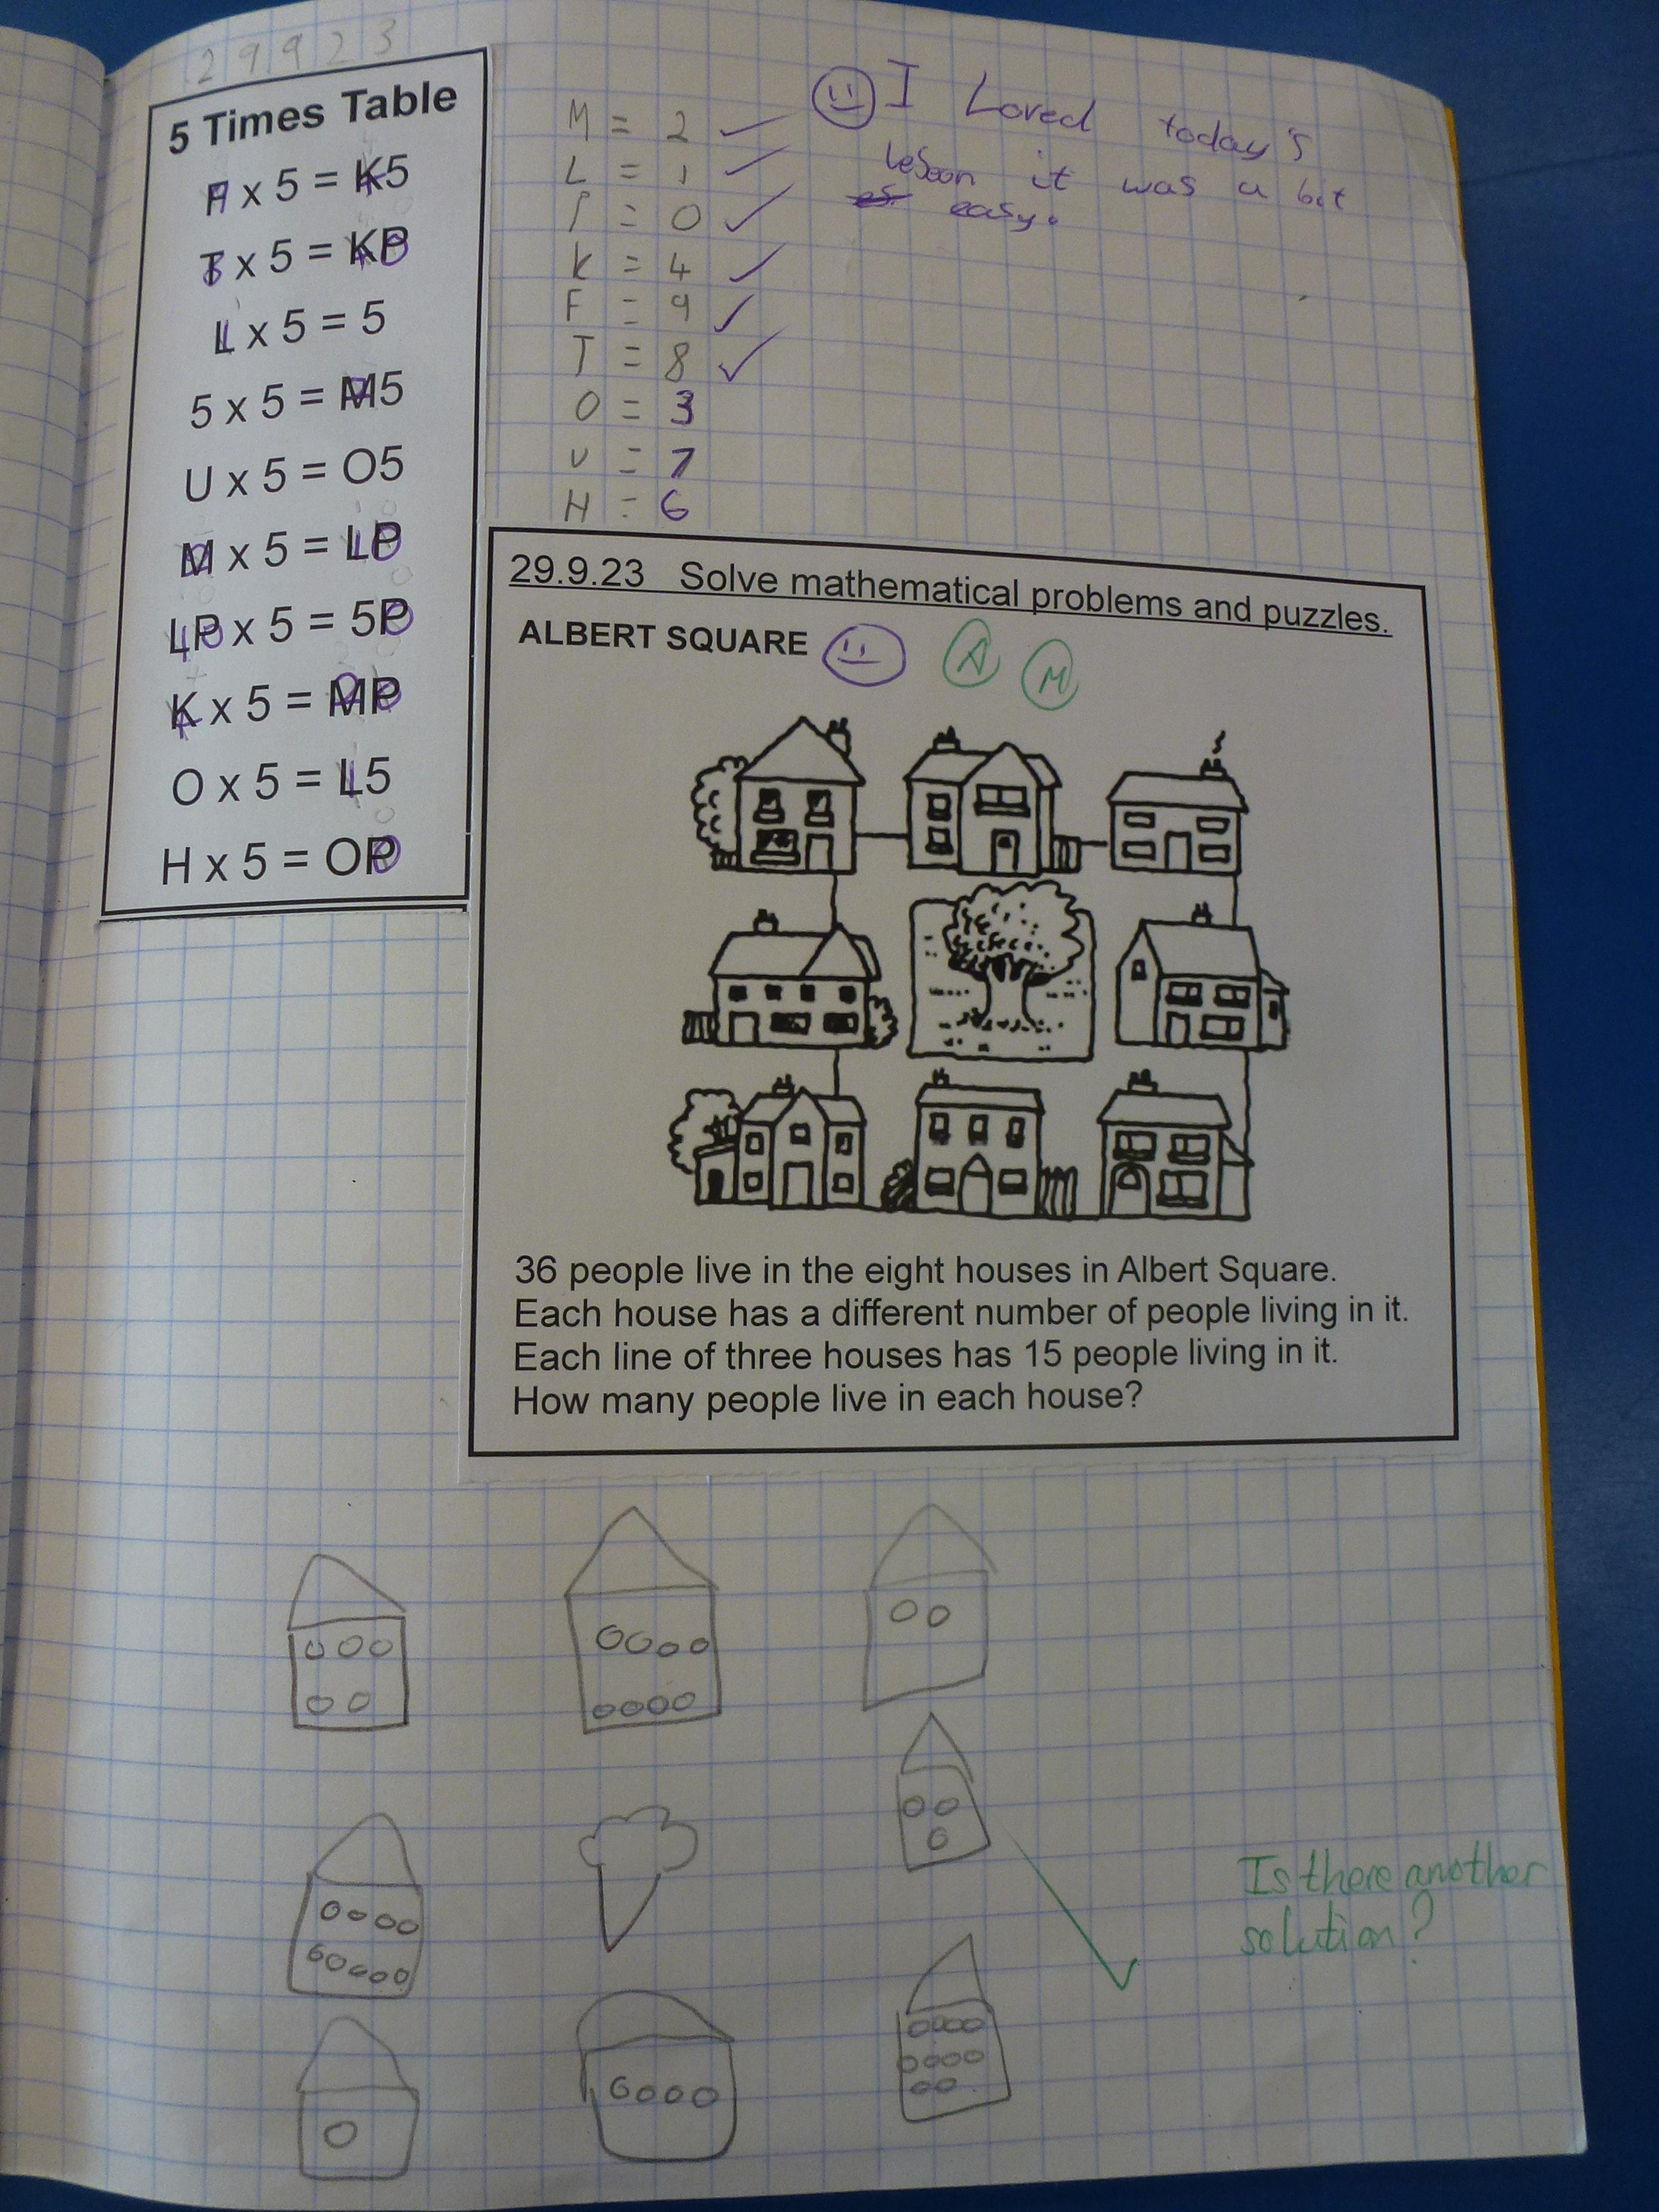 29923
5 Times Table
F x 5 = K5
T x 5 = KP
L x 5 = 5
5 x 5 = M5
U x 5 = O5
M x 5 = LP
LP x 5 = 5P
K x 5 = MP
O x 5 = L5
H x 5 = OP
M = 2
L = 1
P = 0
K = 4
F = 9
T = 8
O = 3
U = 7
H = 6
I Loved today's
lesson it was a bit
easy.
29.9.23 Solve mathematical problems and puzzles.
ALBERT SQUARE
A M
36 people live in the eight houses in Albert Square.
Each house has a different number of people living in it.
Each line of three houses has 15 people living in it.
How many people live in each house?
Is there another
solution?